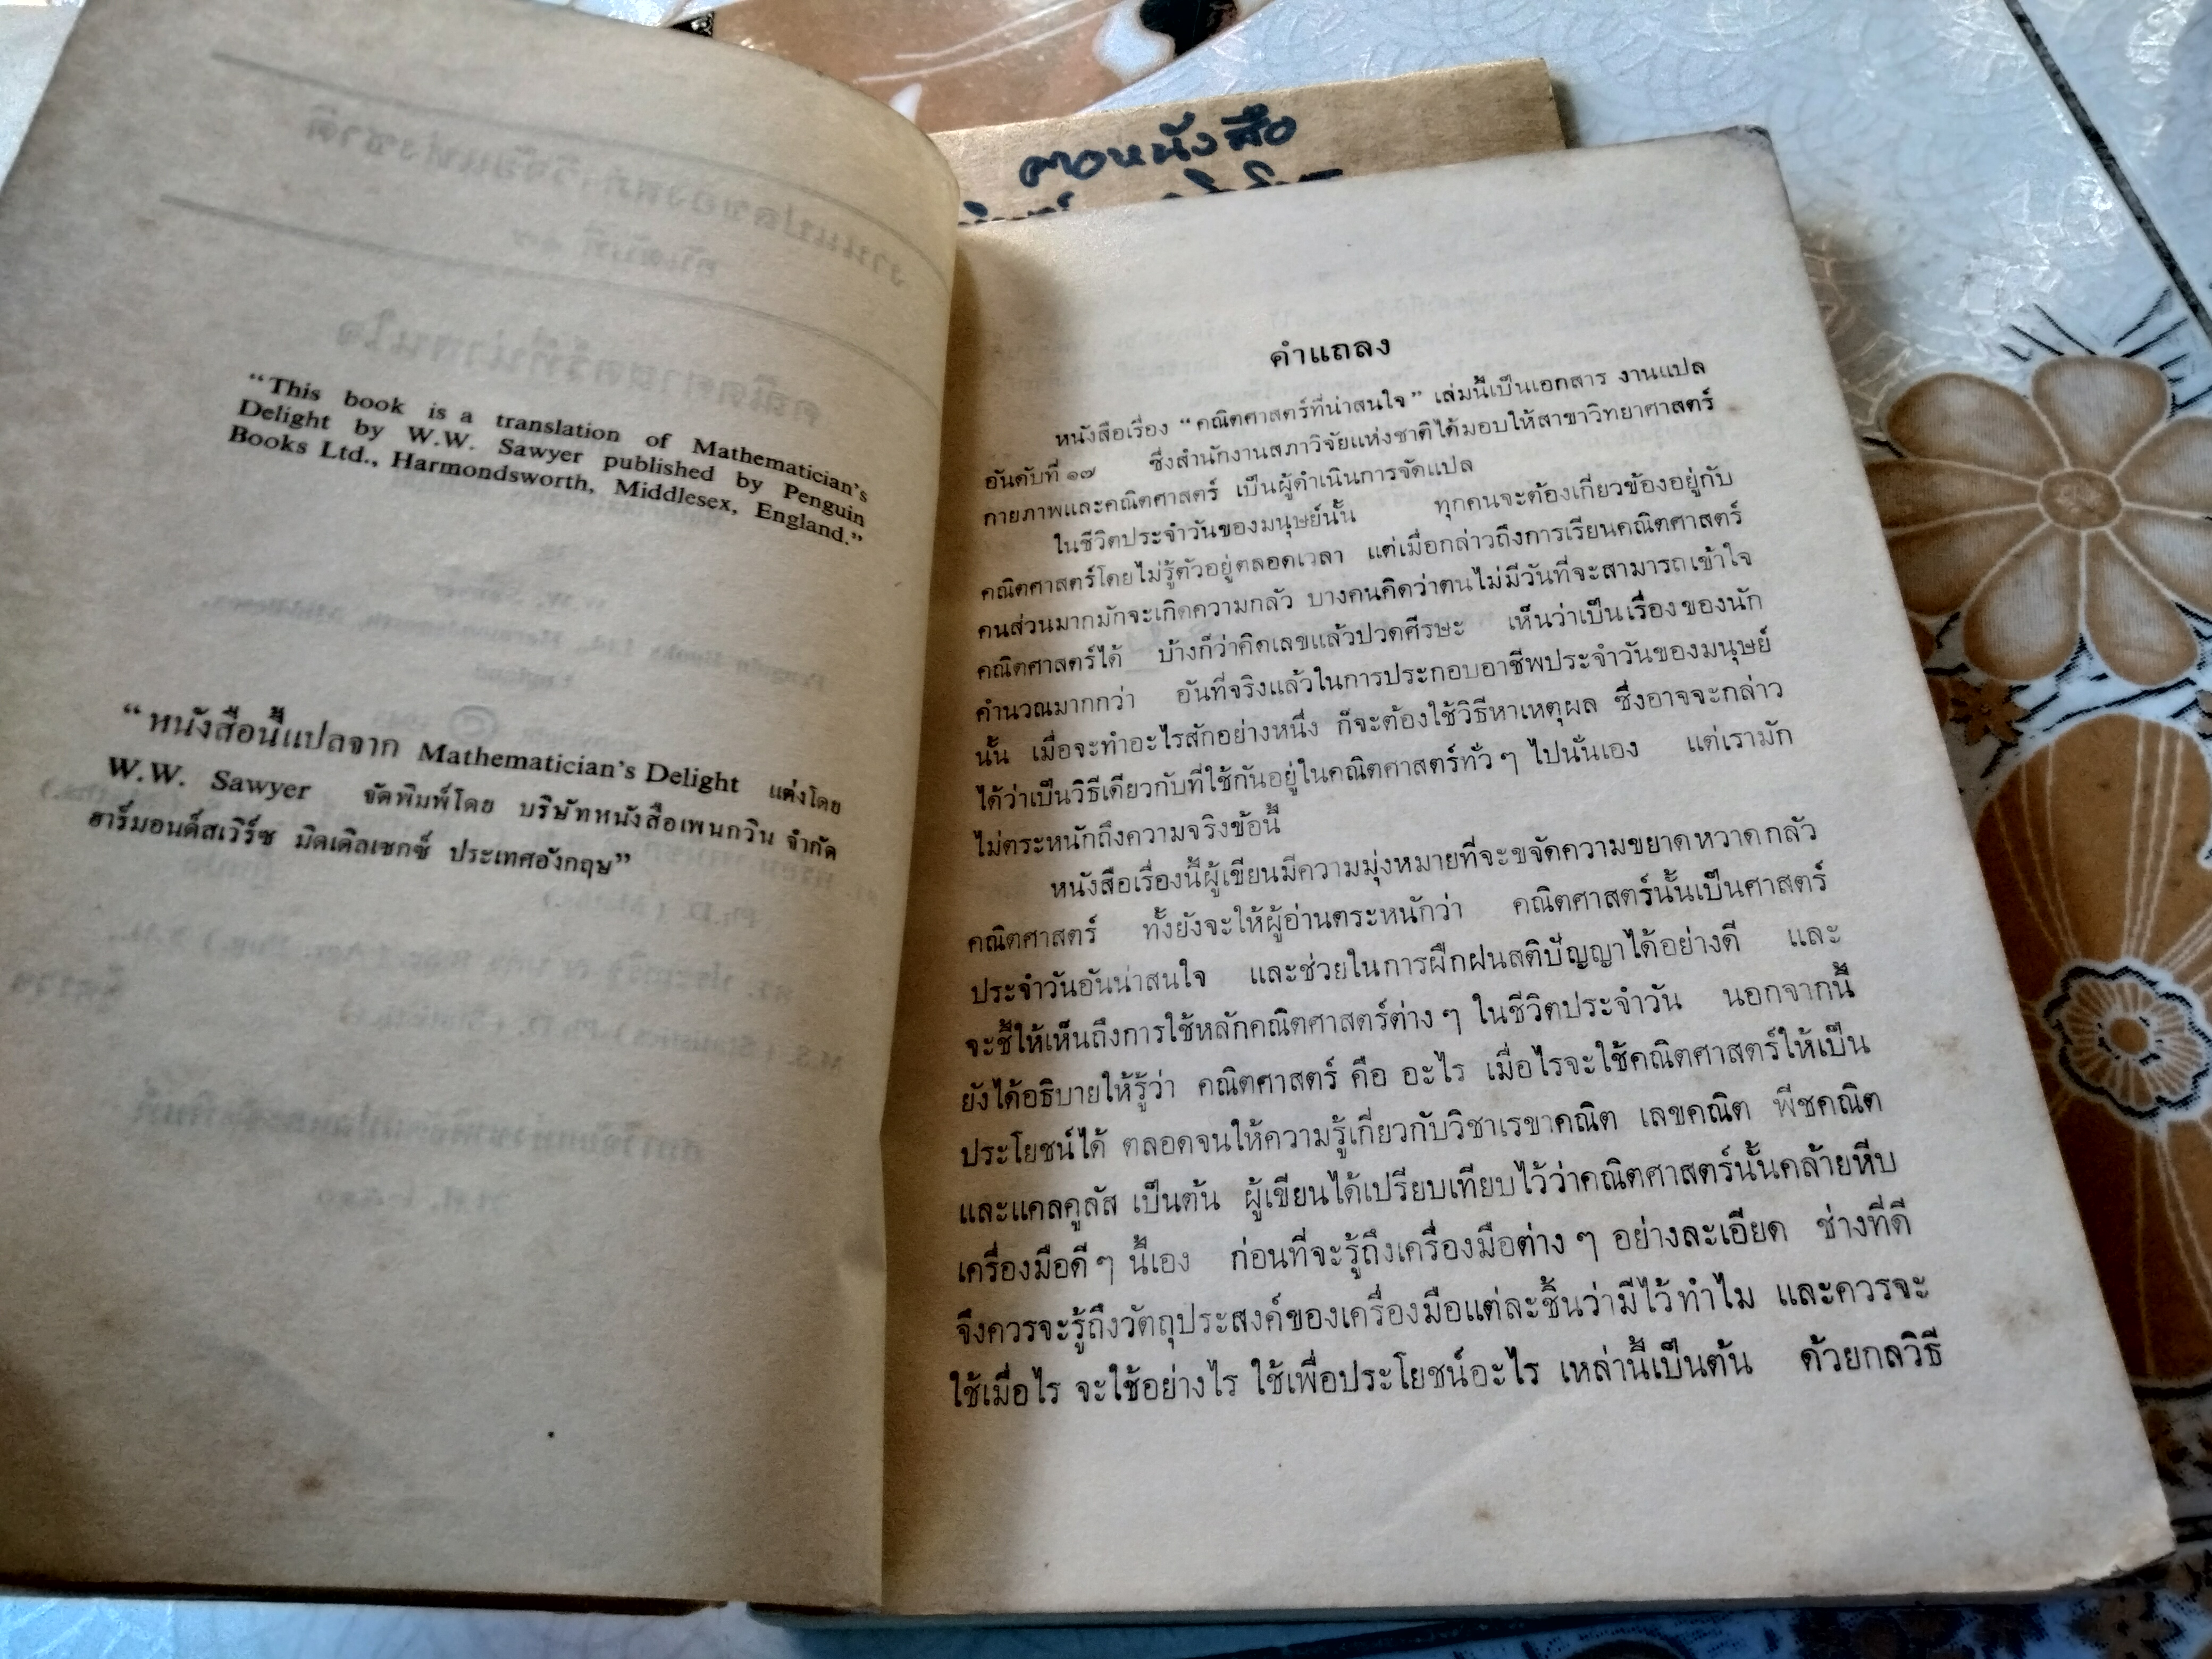 “This book is a translation of Mathematician's
Delight by W.W. Sawyer published by Penguin
Books Ltd., Harmondsworth, Middlesex, England.”
“หนังสือนี้แปลจาก Mathematician's Delight แต่งโดย
W.W. Sawyer จัดพิมพ์โดย บริษัทหนังสือเพนกวิน จำกัด
ฮาร์มอนด์สเวิร์ซ มิดเดิลเซกซ์ ประเทศอังกฤษ”
ตอหนังสือ
คำแถลง
หนังสือเรื่อง “คณิตศาสตร์ที่น่าสนใจ” เล่มนี้เป็นเอกสาร งานแปล
อันดับที่ ๑๗ ซึ่งสำนักงานสภาวิจัยแห่งชาติได้มอบให้สาขาวิทยาศาสตร์
กายภาพและคณิตศาสตร์ เป็นผู้ดำเนินการจัดแปล
ในชีวิตประจำวันของมนุษย์นั้น ทุกคนจะต้องเกี่ยวข้องอยู่กับ
คณิตศาสตร์โดยไม่รู้ตัวอยู่ตลอดเวลา แต่เมื่อกล่าวถึงการเรียนคณิตศาสตร์
คนส่วนมากมักจะเกิดความกลัว บางคนคิดว่าตนไม่มีวันที่จะสามารถเข้าใจ
คณิตศาสตร์ได้ บ้างก็ว่าคิดเลขแล้วปวดศีรษะ เห็นว่าเป็นเรื่องของนัก
คำนวณมากกว่า อันที่จริงแล้วในการประกอบอาชีพประจำวันของมนุษย์
นั้น เมื่อจะทำอะไรสักอย่างหนึ่ง ก็จะต้องใช้วิธีหาเหตุผล ซึ่งอาจจะกล่าว
ได้ว่าเป็นวิธีเดียวกับที่ใช้กันอยู่ในคณิตศาสตร์ทั่วๆ ไปนั่นเอง แต่เรามัก
ไม่ตระหนักถึงความจริงข้อนี้
หนังสือเรื่องนี้ผู้เขียนมีความมุ่งหมายที่จะขจัดความขยาดหวาดกลัว
คณิตศาสตร์ ทั้งยังจะให้ผู้อ่านตระหนักว่า คณิตศาสตร์นั้นเป็นศาสตร์
ประจำวันอันน่าสนใจ และช่วยในการฝึกฝนสติปัญญาได้อย่างดี และ
จะชี้ให้เห็นถึงการใช้หลักคณิตศาสตร์ต่างๆ ในชีวิตประจำวัน นอกจากนี้
ยังได้อธิบายให้รู้ว่า คณิตศาสตร์ คือ อะไร เมื่อไรจะใช้คณิตศาสตร์ให้เป็น
ประโยชน์ได้ ตลอดจนให้ความรู้เกี่ยวกับวิชาเรขาคณิต เลขคณิต พีชคณิต
และแคลคูลัส เป็นต้น ผู้เขียนได้เปรียบเทียบไว้ว่าคณิตศาสตร์นั้นคล้ายหีบ
เครื่องมือดีๆ นี้เอง ก่อนที่จะรู้ถึงเครื่องมือต่างๆ อย่างละเอียด ช่างที่ดี
จึงควรจะรู้ถึงวัตถุประสงค์ของเครื่องมือแต่ละชิ้นว่ามีไว้ทำไม และควรจะ
ใช้เมื่อไร จะใช้อย่างไร ใช้เพื่อประโยชน์อะไร เหล่านี้เป็นต้น ด้วยกลวิธี